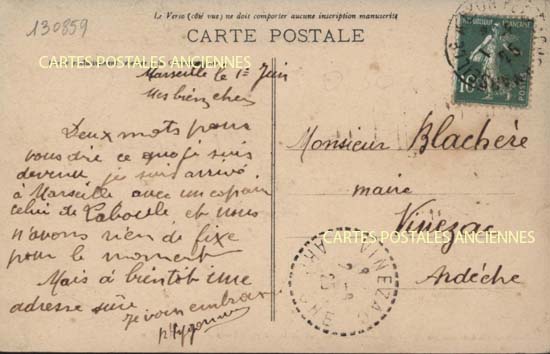 130859
Le Verso (côté vue) ne doit comporter aucune inscription manuscrite
CARTE POSTALE
CARTES POSTALES ANCIENNES
Marseille le 1er Juin
Mes bien chers
Deux mots pour
vous dire ce que je suis
devenu je suis arrivé
à Marseille avec un copain
celui de Laboule et nous
n'avons rien de fixe
pour le moment
Mais à bientôt une
adresse sûre
Je vous embrasse
Monsieur Blachère
maire
Vinezac
CARTES POSTALES ANCIENNES
Ardèche
REPUBLIQUE FRANÇAISE
10
POSTES
VINEZAC
ARDECHE